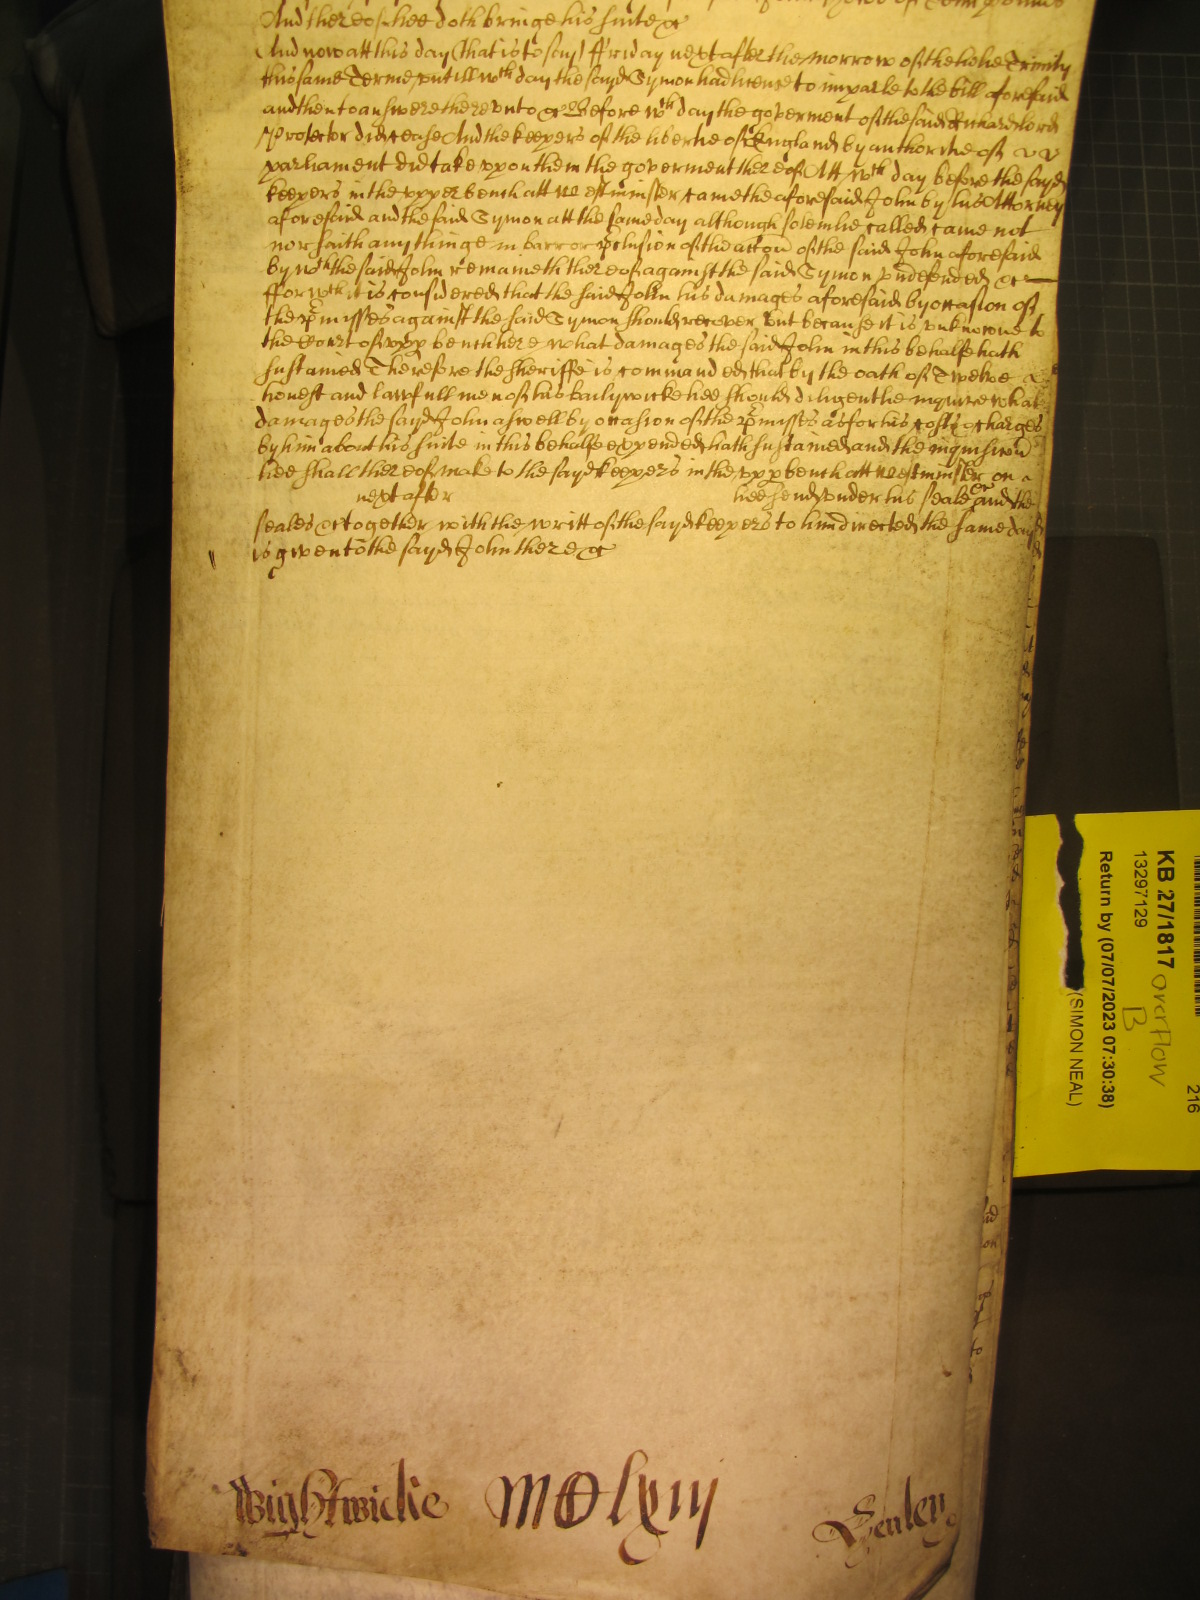 And thereof hee doth bringe his suite &c
And now att this day (that is to say) ffriday next after the morrow of the holie Trinity
this same Terme untill wch day the sayd Symon had licence to imparle to the bill aforesaid
and then to answere thereunto &c Before wch day the goverment of the said Richard lord
Protector did cease And the keepers of the libertie of England by authoritie of
parliament did take uppon them the goverment thereof Att wch day before the sayd
keepers in the upper bench att westminster came the aforesaid John by his Attorney
aforesaid and the said Symon att the same day although solemlie called came not
nor saith any thinge in barr or pclusion of the accon of the said John aforesaid
by wch the said John remaineth thereof against the said Symon undefended &c
ffor wch it is considered that the said John his damages aforesaid by occasion of
the pmisses against the said Symon should recover but because it is unknowne to
the Court of upp bench here what damages the said John in this behalfe hath
sustained Therefore the sheriffe is commanded that by the oath of Twelve
honest and lawfull men of his bailywicke hee should diligentlie inquire what
damages the sayd John aswell by occasion of the pmisses as for his costs & charges
by him about his suite in this behalfe expended hath sustained and the inquisicon
hee shall thereof make to the sayd keepers in the upp bench att westminster on
next after hee send under his seale &c and the
seales &c together with the writt of the sayd keepers to him directed the same day
is given to the sayd John there &c
Wightwicke MOlxiij Henley
KB 27/1817 overflow
13297129 B
Return by (07/07/2023 07:30:38)
(SIMON NEAL)
216